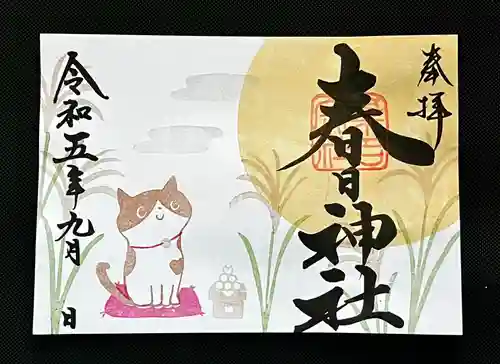 奉拝
春日神社
令和五年九月 日